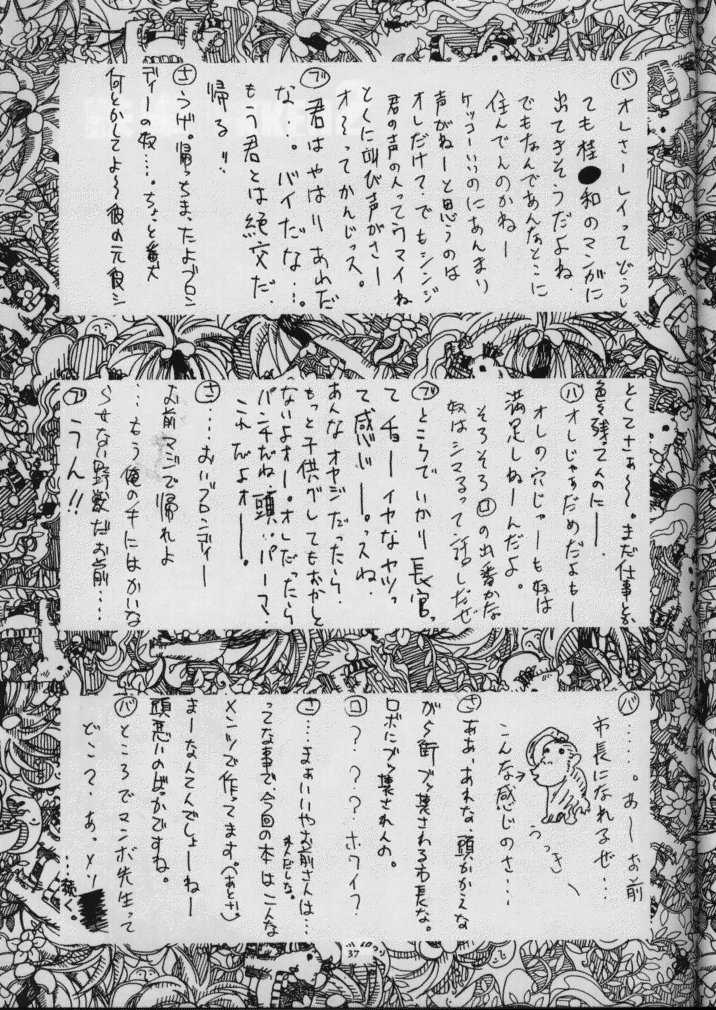 バ オレさーレイってどうし
ても桂●和のマンガに
出てきそうだよね。
でもなんであんなとこに
住んでんのかねー
ケッコーいいのにあんまり
声がねーと思うのは
オレだけ?でもシンジ
君の声の人ってウマイね
とくに叫び声がさー
オ〜ってかんじっス。
ブ 君はやはりあれだ
な…。バイだな…。
もう君とは絶交だ、
帰る!!
さ うげ。帰っちまったよブロン
ディーの奴…。ちょと
何とかしてよ〜彼の元食シ
としてさぁ〜。まだ仕事とか
色々残ってんのにー。
バ オレじゃぁだめだよもー
オレの穴じゃーも奴は
満足しねーんだよ。
そろそろロの出番かな
奴はシマるって話しだぜ
ブ ところでいかり長官っ
てチョーイヤなヤツっ
て感じー。っスね、
あんなオヤジだったら、
もっと子供グレてもおかしく
ないよォー。オレだったら
パンチだね、頭、パーマ、
これだよォー。
さ …おいブロンディー
お前マジで帰れよ
…もう俺の手にはおえな
らせない野獣だお前…
ブ うん!!
バ ……。あーお前
市長になれるぜ…
こんな感じのさ…
うっきー
さ ああ、あれな、頭かかえな
がら街ブッ壊される市長な。
ロボにブッ壊されんの。
ロ ????ホワイ?
さ …まぁいいやお前さんは…
ってな事で今回の本はこんな
メンツで作ってます。(あとが)
まーなんてんでしょーねー
頭悪いのばっかですね。
バ ところでマンボ先生って
どこ?、あっ、メソ
…続く。
37